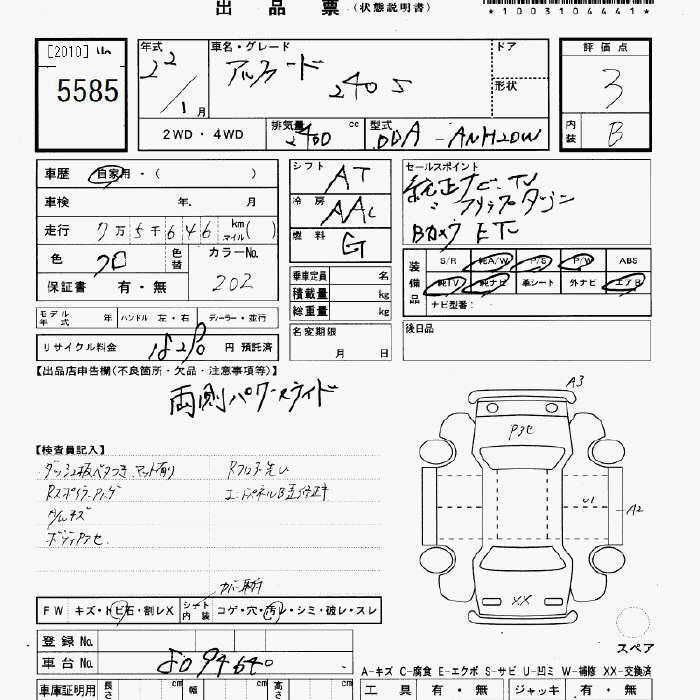 出 品 票 (状態説明書)
*1003104441*
[2010]
5585
年式
22/1月
車名・グレード
アルファード
240S
ドア
形状
評価点
3
内装
B
2WD・4WD
排気量
2400 cc
型式
DBA-ANH20W
車歴 自家用・( )
車検 年. 月
走行 7万5千646 km マイル( )
色 クロ
色替
カラーNo.
202
保証書 有・無
シフト
AT
冷房
AAC
燃料
G
乗車定員 名
積載量 kg
総重量 kg
セールスポイント
純正ナビ.TV
フリップダウン
Bカメラ ETC
装備品
S/R 純A/W P/S P/W ABS
純TV 純ナビ 革シート 外ナビ エアB
ナビ型番:
モデル年式 年 ハンドル 左・右 ディーラー・並行
リサイクル料金 円 預託済
名変期限
月 日
後日品
【出品店申告欄(不良箇所・欠品・注意事項等)】
両側パワースライド
【検査員記入】
ダッシュ板ベタつき マット有り
Rスポイラー
内ムキズ
ボディアクセ.
Rフロア
A3
U1
A2
XX
カバー
FW キズ・トビ石・割レX
シート内装 コゲ・穴・汚レ・シミ・破レ・スレ
スペア
登録 No.
車台 No. 8094640
A-キズ C-腐食 E-エクボ S-サビ U-凹ミ W-補修 XX-交換済
車庫証明用 長さ cm 幅 cm 高さ cm
工具 有・無 ジャッキ 有・無